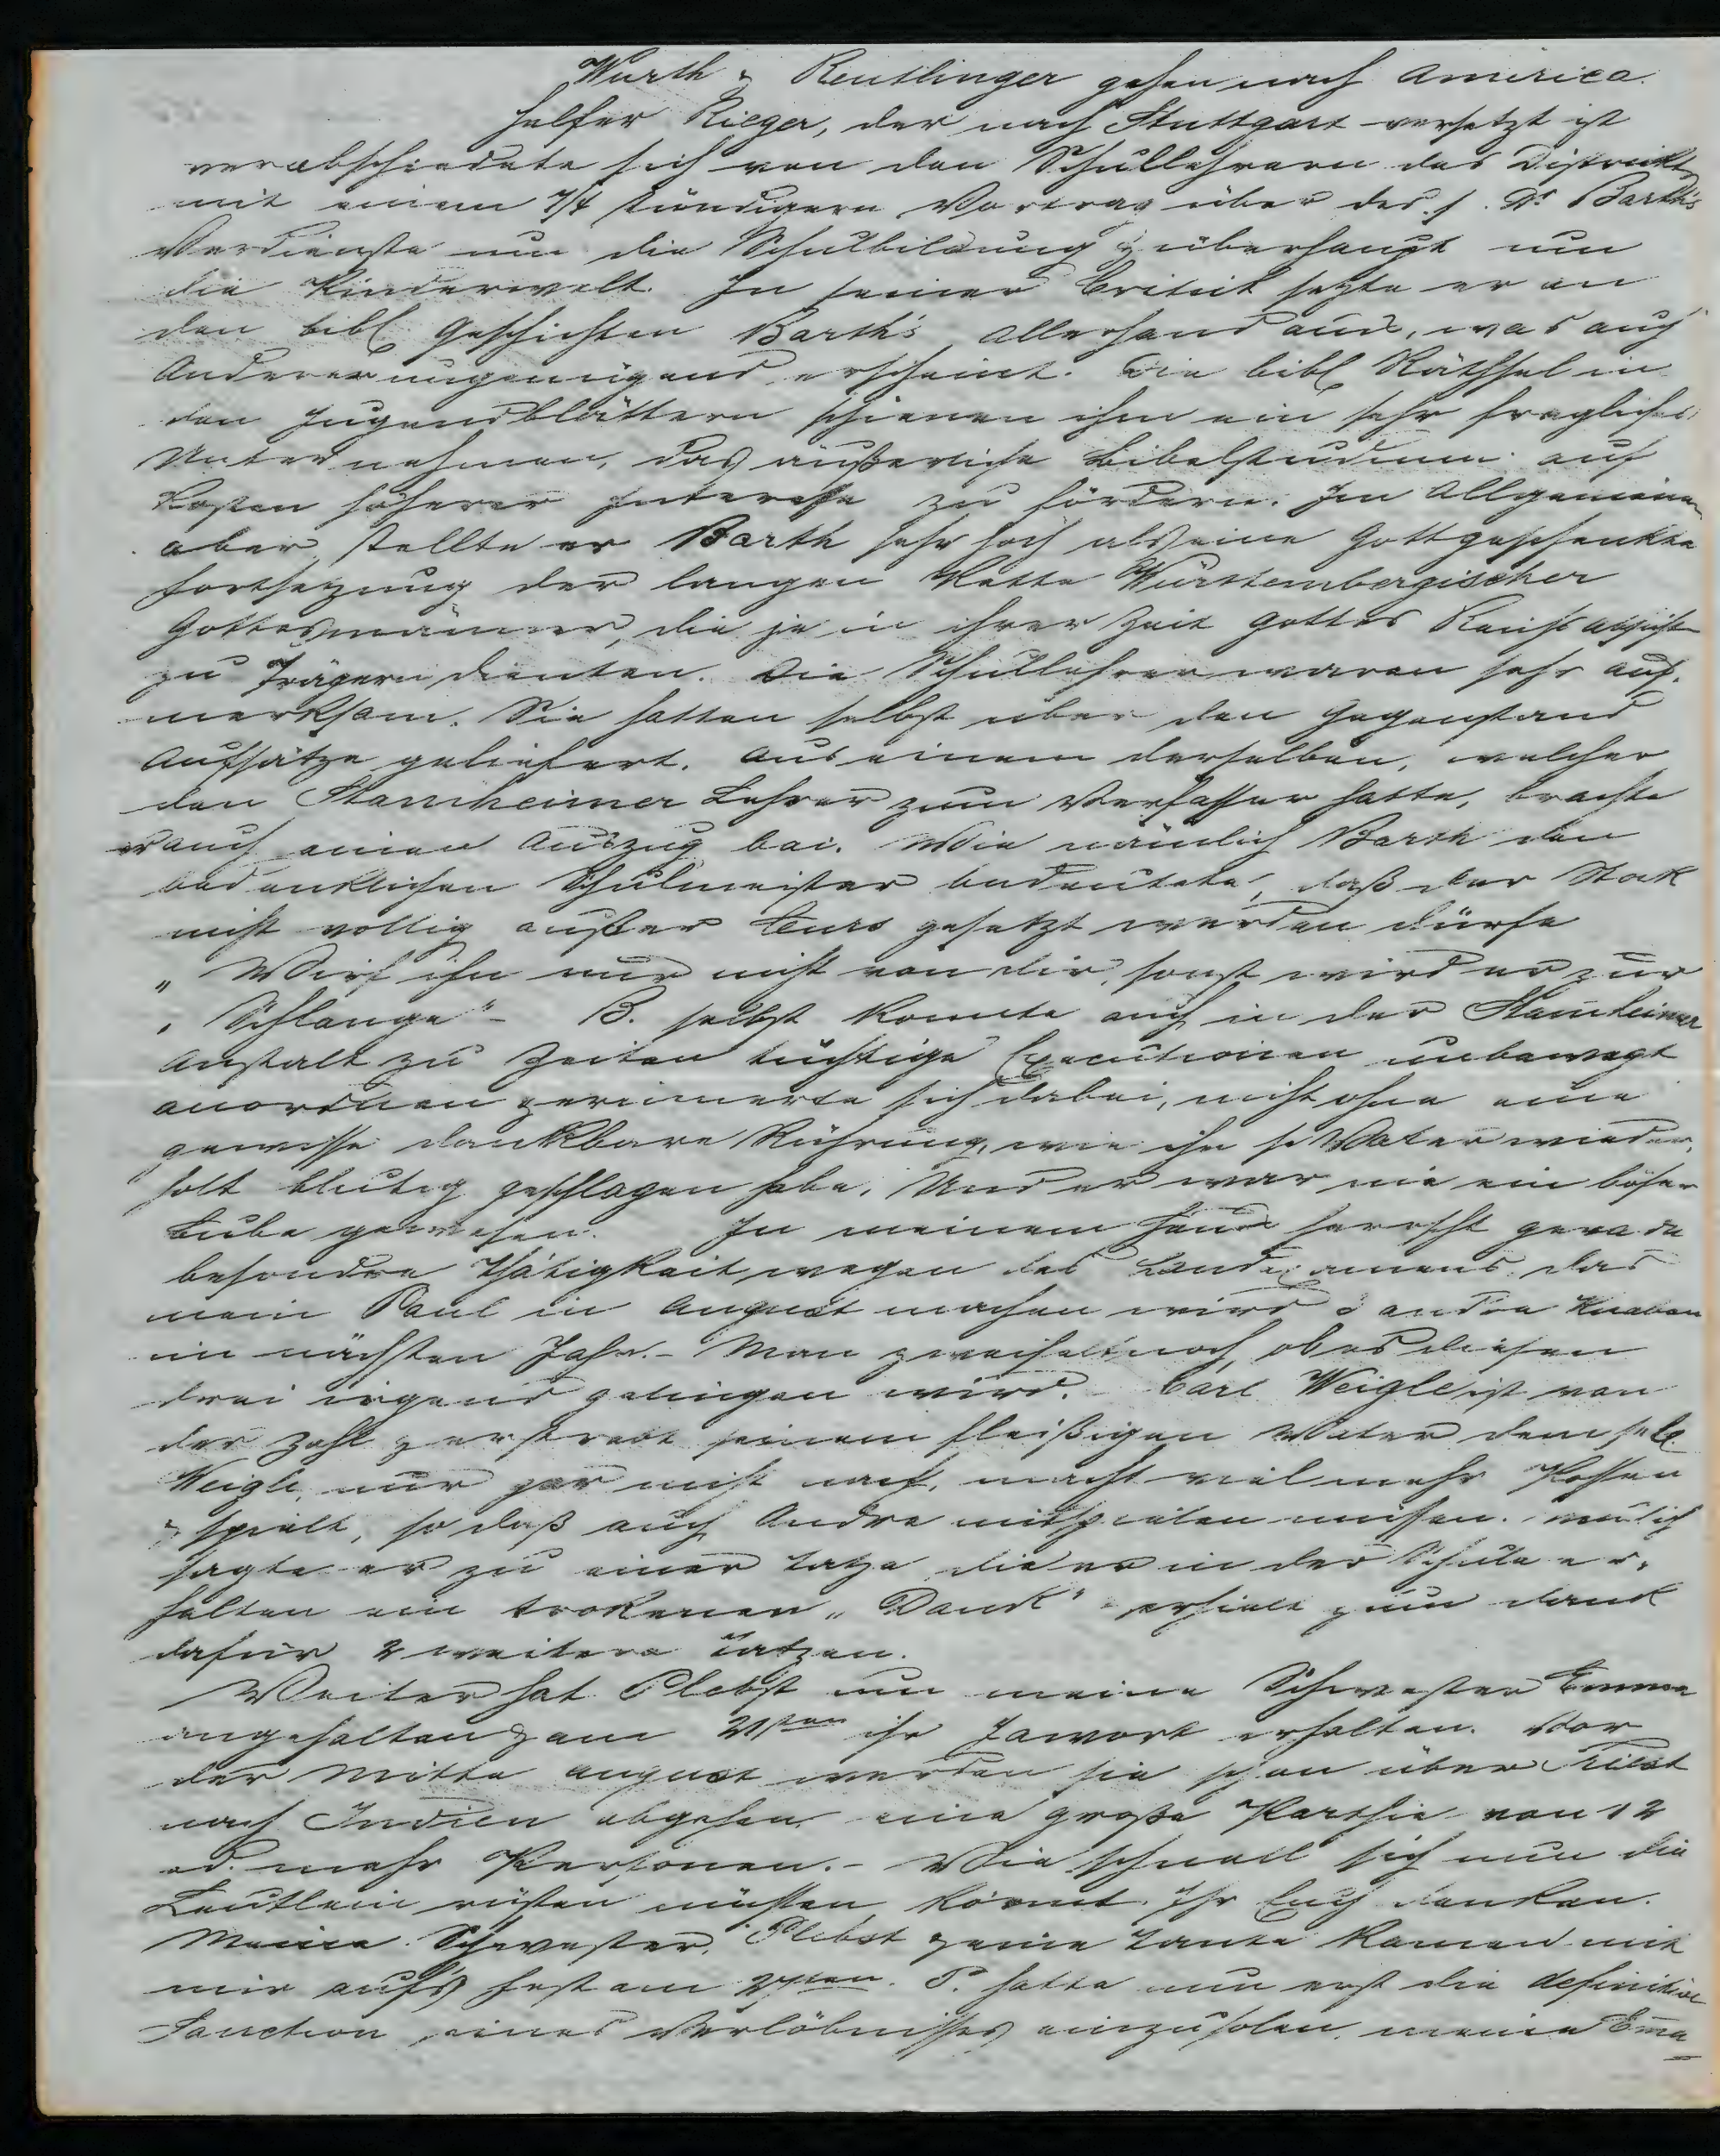 Wurth & Reutlinger gehen nach America.
Helfer Rieger, der nach Stuttgart versetzt ist
verabschiedete sich von den Schullehrern des Distrikts
mit einem 7/4 stündigem Vortrag über des s. Dr Barth's
Verdienste um die Schulbildung & überhaupt um
die Kinderwelt. In seiner Critik setzte er an
den bibl Geschichten Barth's allerhand aus, was auch
Anderen ungenügend erscheint. Die bibl Räthsel in
den Jugendblättern schienen ihm ein sehr fragliches
Unternehmen, das äußerliche Bibelstudium auf
Kosten höherer Interesse zu fördern. Im Allgemeinen
aber stellte er Barth sehr hoch als eine Gottgeschenkte
Fortsetzung der langen Kette Würstembergischer
Gottesmänner, die je in ihrer Zeit Gottes Reichs
zu Trägern dienten. Die Schullehrer waren sehr auf-
merksam. Sie hatten selbst über den Gegenstand
Aufsätze geliefert. Aus einem derselben, welcher
den Stammheimer Lehrer zum Verfasser hatte, brachte
er auch einen Auszug bei. Wie nämlich Barth den
bedenklichen Schulmeister bedeutete, daß der Stok
nicht vollig außer Curs gesetzt werden dürfe
„ Wirf ihn nur nicht von dir, sonst wird er zur
„ Schlange" - B. selbst konnte auch in der Stam̄heimer
Anstalt zu Zeiten tüchtige Executionen unbewegt
anordnen & erinnerte sich dabei, nicht ohne eine
gewisse dankbare Rührung, wie ihn s. Vater wieder-
holt blutig geschlagen habe. Und er war nie ein böser
Bube gewesen. In meinem Hause herrscht gerade
besondre Thätigkeit wegen des Landexamens, das
mein Paul in August machen wird & andre Knaben
im nächsten Jahr. - Man zweifelt noch, ob es diesen
drei irgend gelingen wird. Carl Weigle ist von
der Zahl & erstrebt seinem fleißigen Vater dem sel.
Weigle, nur gar nicht nach, macht vielmehr Possen
& spielt, so daß auch Andre mitspielen müssen. Neulich
sagte er zu einer Tatze die er in der Schule er-
halten ein trokenen „Dank" & erhielt zum dank
dafür 2 weitere Tatzen.
Weiter hat Plebst um meine Schwester Emma
angehalten & am 21sten ihr Jawort erhalten. Vor
der Mitte August werden sie schon über Triest
nach Indien abgehen eine große Parthie von 12
od. mehr Personen. - Wie schnell sich nun die
Leutlein rüsten müssen könnt Ihr Euch denken.
Meine Schwester, Plebst & eine Tante kamen mit
mir aufs Fest am 24sten. P. hatte nun erst die definitive
Sanction seines Verlöbnisses einzuholen, meine Em̄a